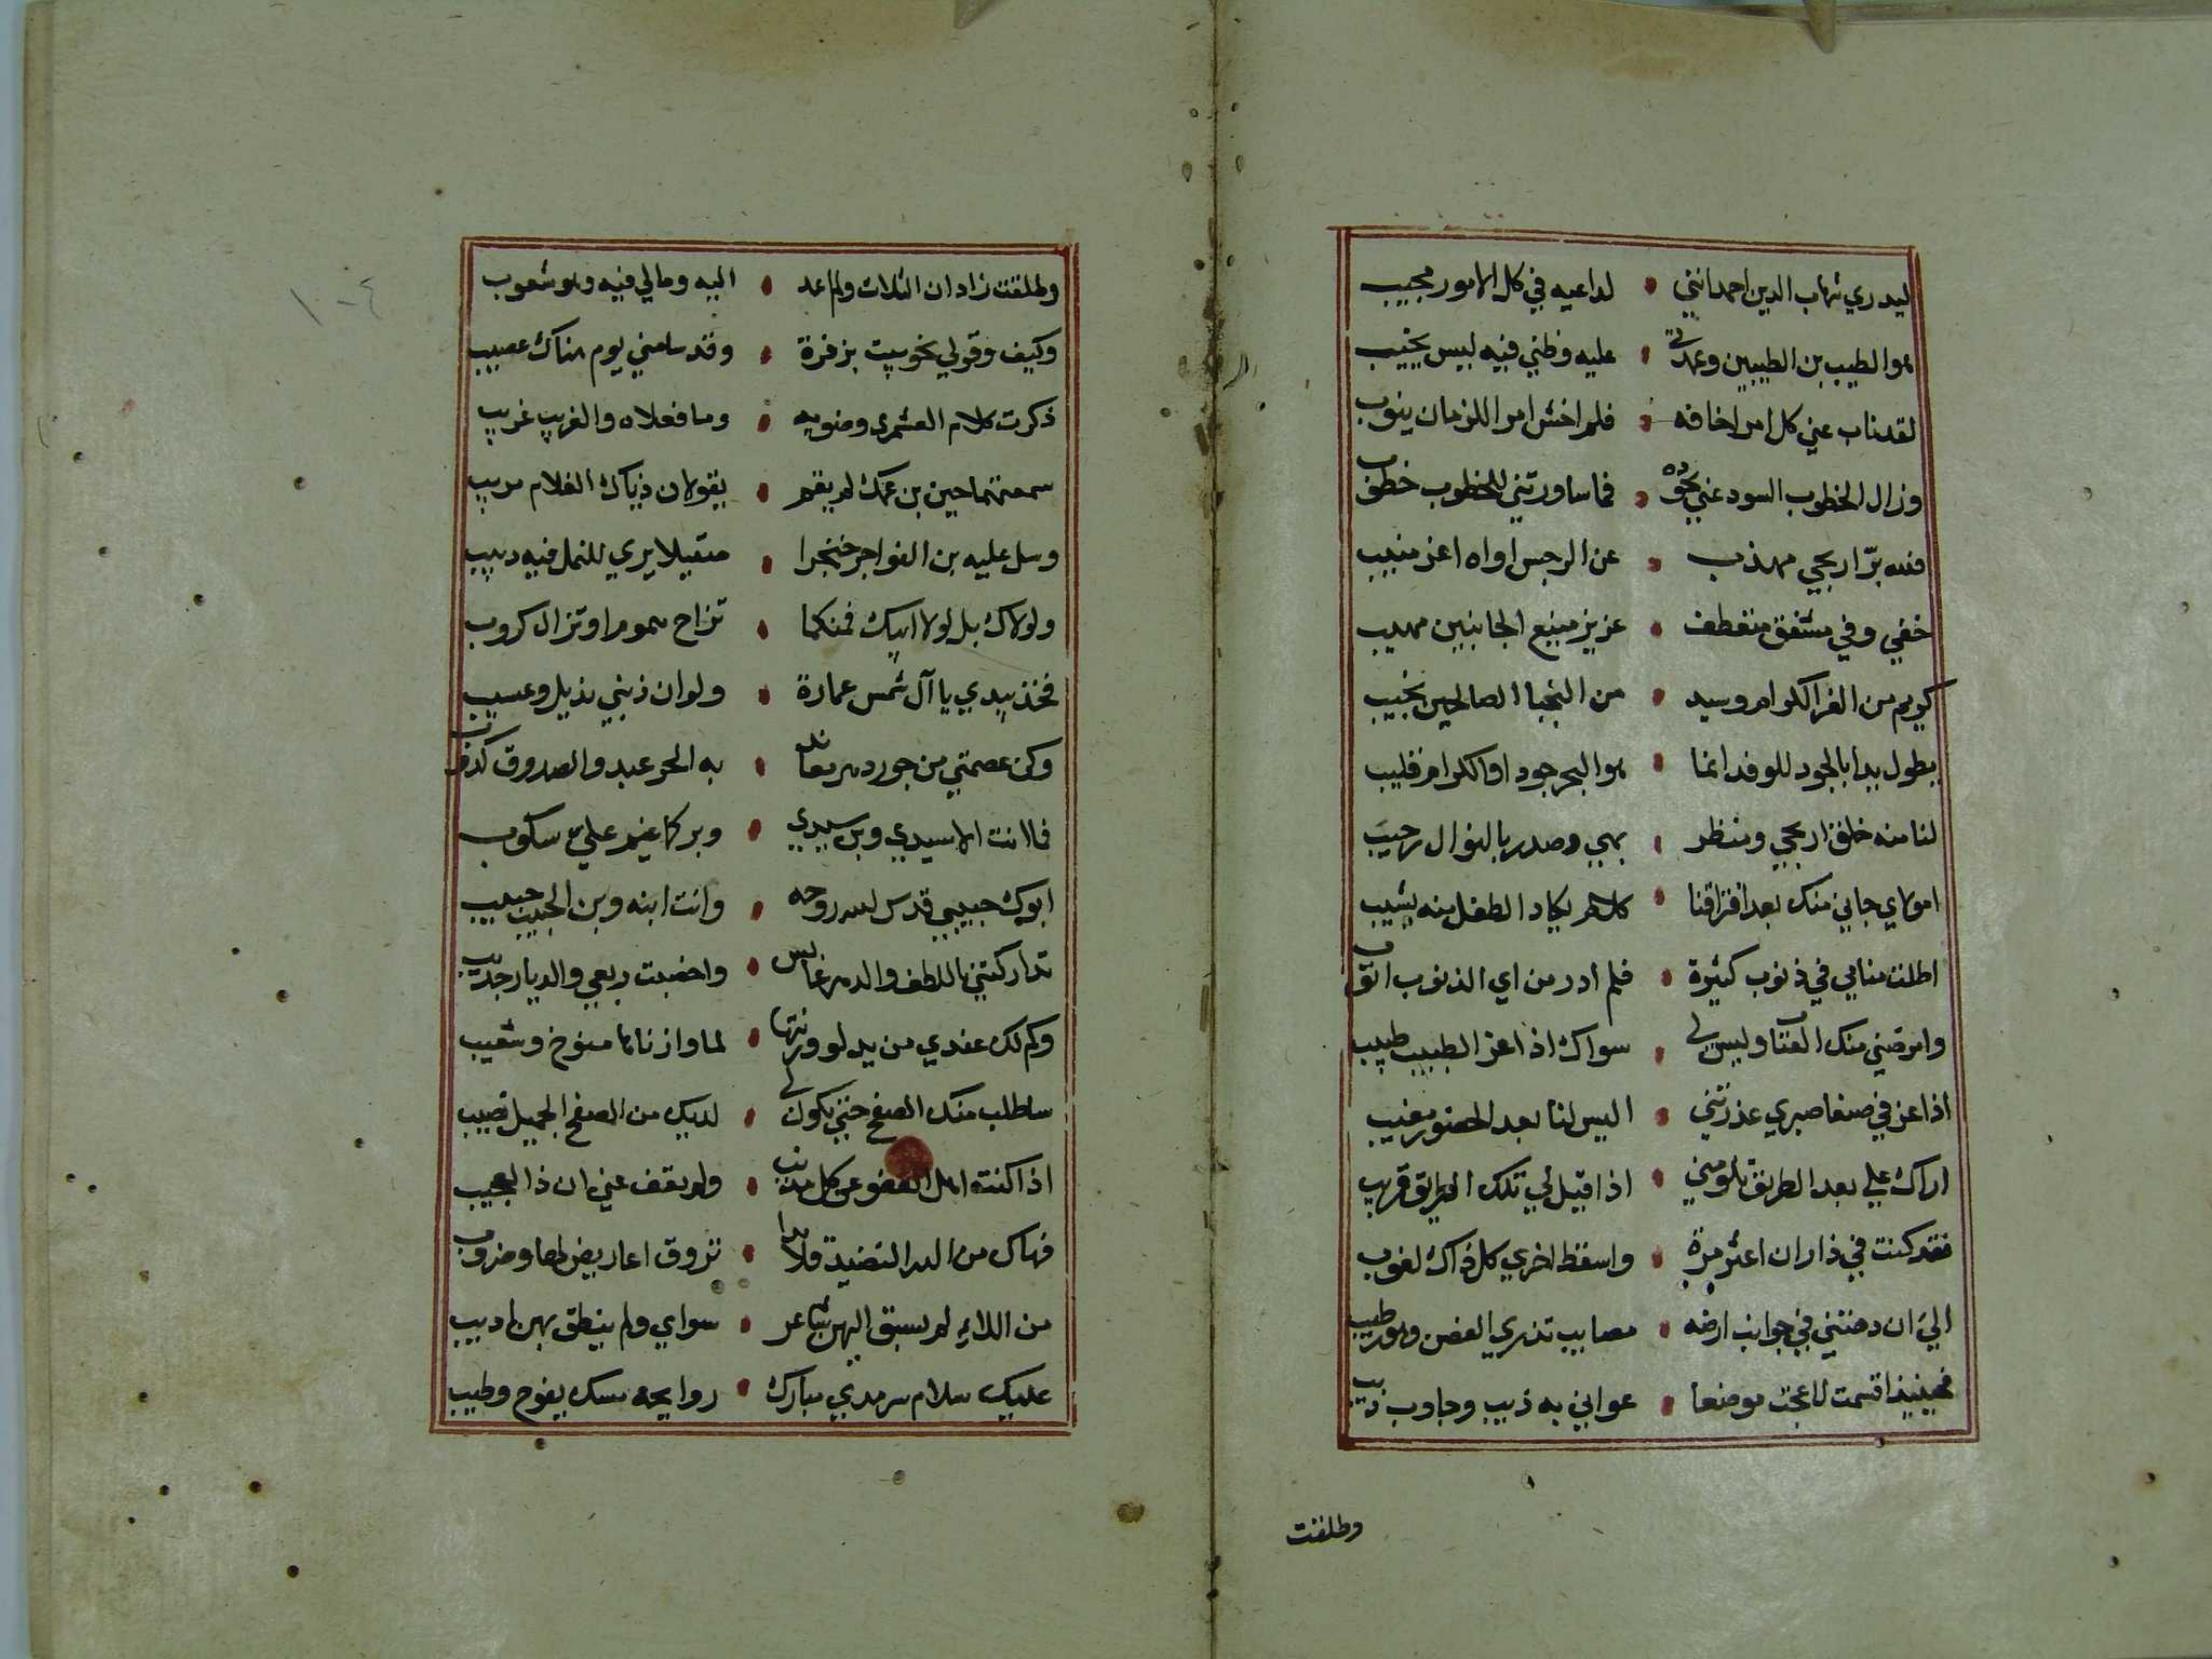 ليدري شهاب الدين احمد انني • لداعيه في كل الامور مجيب
هو الطيب بن الطيبين وعمدتي • عليه وظني فيه ليس يخيب
لقد ناب عني كل امر اخافه • فلم اخش امرا للزمان ينوب
وزال الخطوب السود عني بجوده • فما ساورتني للخطوب خطوب
فتى بر اريحي مهذب • عن الرجس اواه اغر منيب
خفي وفي مشفق متعطف • عزيز منيع الجانبين مهيب
كريم من الغر الكرام وسيد • من النجبا الصالحين نجيب
يطول يدا بالجود للوفد انما • هو البحر جودا والكرام قليب
لنا منه خلق اريحي ومنظر • بهي وصدر بالنوال رحيب
امولاي جاني منك بعد افتراقنا • كلام يكاد الطفل منه يشيب
اطلت منامي في ذنوب كثيرة • فلم ادر من اي الذنوب اتوب
وامرضني منك العتاب وليس لي • سواك اذا عز الطبيب طبيب
اذا عز في صنعا صبري عذرتني • اليس لنا بعد الحضور مغيب
اراك علي بعد الطريق تلومني • اذا قيل لي تلك الطريق قريب
فقد كنت في ذا ران اعثر مرة • واسقط اخري كل ذاك لغوب
الي ان دهتني في جوانب ارضه • مصايب تذري الغصن وهو رطيب
فحينيذ اقسمت لا عجت موضعا • عواني به ذيب وجاوب ذيب
وطلفت
وطلفت زادان الثلاث ولم اعد • اليه ومالي فيه وهو شعوب
وكيف وقولي نحو بيت بز فزة • وقد سامني يوم هناك عصيب
ذكرت كلام العشمري وصنويه • وما فعلاه والغريب غريب
سمعتهما حين بن عمك لم يقم • يقولان ذياك الغلام مريب
وسل عليه بن الفواجر خنجرا • صقيلا يري للنمل فيه دبيب
ولولاك بل لولا ابيك فمنكما • تزاح هموم او تزال كروب
فخذ بيدي يا آل شمس عمارة • ولو ان ذنبي يذبل وعسيب
وكن عصمتي من جور دهر معاند • به الحر عبد والصدوق كذوب
فما انت الا سيدي وبن سيدي • وبركما غيم علي سكوب
ابوك حبيبي قدس الله روحه • وانت ابنه وبن الحبيب حبيب
تداركتني باللطف والدهر عابس • واخصبت ربعي والديار جديب
وكم لك عندي من يد لو وزنتها • لما وازناها مسوخ وشعيب
ساطلب منك الصفح حتي يكون لي • لديك من الصفح الجميل نصيب
اذا كنت اهل العفو عن كل مذنب • ولم تعف عني ان ذا لعجيب
فهاك من الدر النضيد قلايدا • تروق اعاريض لها وضروب
من اللاء لم يسبق اليهن شاعر • سواي ولم ينطق بهن اديب
عليك سلام سرمدي مبارك • روايحه مسك يفوح وطيب